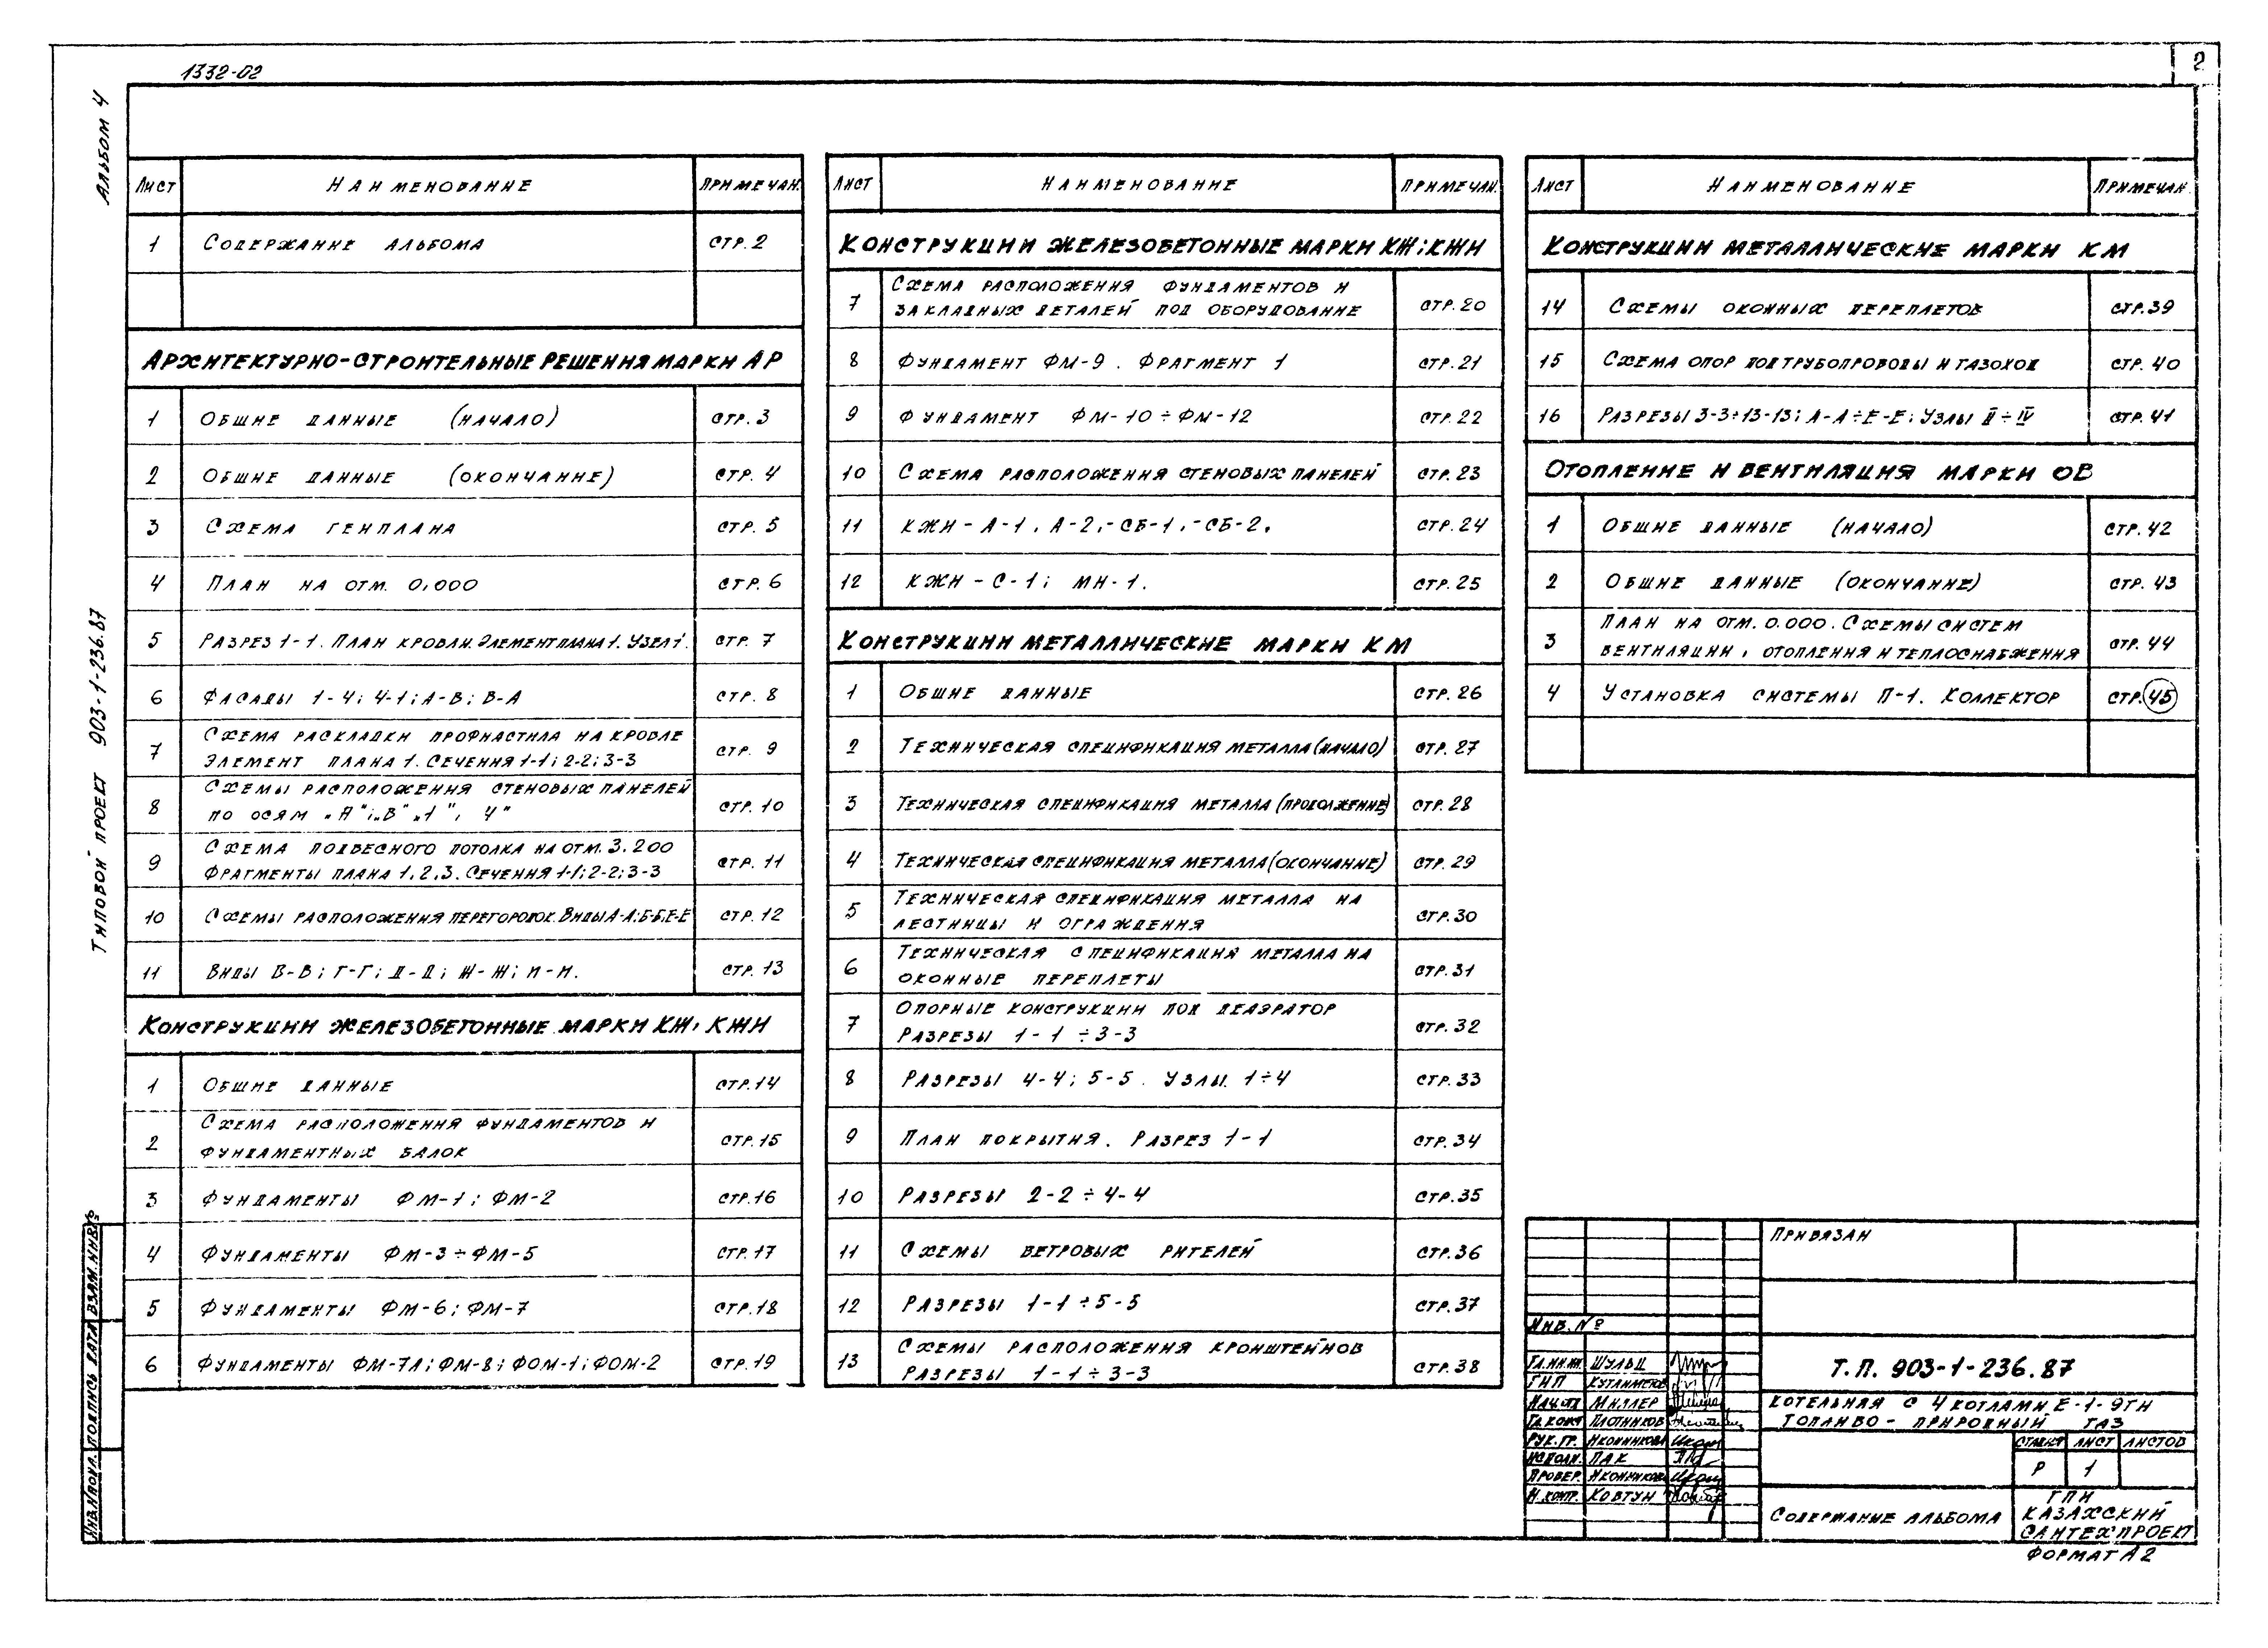 1332-02
2
Альбом 4
Типовой проект 903-1-236.87
Лист Наименование Примечан.
1 Содержание альбома стр. 2
Архитектурно-строительные решения марки АР
1 Общие данные (начало) стр. 3
2 Общие данные (окончание) стр. 4
3 Схема генплана стр. 5
4 План на отм. 0,000 стр. 6
5 Разрез 1-1. План кровли. Элемент плана 1. Узел 1. стр. 7
6 Фасады 1-4; 4-1; А-В; В-А стр. 8
7 Схема раскладки профнастила на кровле стр. 9
Элемент плана 1. Сечения 1-1; 2-2; 3-3
8 Схемы расположения стеновых панелей стр. 10
по осям „А"; „В" „1", 4"
9 Схема подвесного потолка на отм. 3.200 стр. 11
Фрагменты плана 1, 2, 3. Сечения 1-1; 2-2; 3-3
10 Схемы расположения перегородок. Виды А-А; Б-Б; Е-Е стр. 12
11 Виды В-В; Г-Г; Д-Д; Ж-Ж; И-И. стр. 13
Конструкции железобетонные марки КЖ, КЖИ
1 Общие данные стр. 14
2 Схема расположения фундаментов и стр. 15
фундаментных балок
3 Фундаменты ФМ-1; ФМ-2 стр. 16
4 Фундаменты ФМ-3÷ФМ-5 стр. 17
5 Фундаменты ФМ-6; ФМ-7 стр. 18
6 Фундаменты ФМ-7А; ФМ-8; ФОМ-1; ФОМ-2 стр. 19
Лист Наименование Примечан.
Конструкции железобетонные марки КЖ; КЖИ
7 Схема расположения фундаментов и стр. 20
закладных деталей под оборудование
8 Фундамент ФМ-9. Фрагмент 1 стр. 21
9 Фундамент ФМ-10÷ФМ-12 стр. 22
10 Схема расположения стеновых панелей стр. 23
11 КЖИ-А-1, А-2,-СБ-1,-СБ-2. стр. 24
12 КЖИ-С-1; МН-1. стр. 25
Конструкции металлические марки КМ
1 Общие данные стр. 26
2 Техническая спецификация металла (начало) стр. 27
3 Техническая спецификация металла (продолжение) стр. 28
4 Техническая спецификация металла (окончание) стр. 29
5 Техническая спецификация металла на стр. 30
лестницы и ограждения
6 Техническая спецификация металла на стр. 31
оконные переплеты
7 Опорные конструкции под деаэратор стр. 32
Разрезы 1-1÷3-3
8 Разрезы 4-4; 5-5. Узлы. 1÷4 стр. 33
9 План покрытия. Разрез 1-1 стр. 34
10 Разрезы 2-2÷4-4 стр. 35
11 Схемы ветровых рителей стр. 36
12 Разрезы 1-1÷5-5 стр. 37
13 Схемы расположения кронштейнов стр. 38
Разрезы 1-1÷3-3
Лист Наименование Примечан.
Конструкции металлические марки КМ
14 Схемы оконных переплетов стр. 39
15 Схема опор под трубопроводы и газоход стр. 40
16 Разрезы 3-3÷13-13; А-А÷Е-Е; Узлы II÷IV стр. 41
Отопление и вентиляция марки ОВ
1 Общие данные (начало) стр. 42
2 Общие данные (окончание) стр. 43
3 План на отм. 0.000. Схемы систем стр. 44
вентиляции, отопления и теплоснабжения
4 Установка системы П-1. Коллектор стр. 45
Привязан
Инв. №
Т.П. 903-1-236.87
Котельная с 4 котлами Е-1-9ГН
Топливо - природный газ
Гл. инж. Шульц
ГИП
Нач. отд Миллер
Гл. конст Плотников
Рук. гр. Иконникова
Исполн. Пак
Провер. Иконникова
Н. контр. Ковтун
Стадия Лист Листов
Р 1
Содержание альбома
ГПИ
Казахский
Сантехпроект
Формат А2
Инв. № подл. Подпись и дата Взам. инв. №